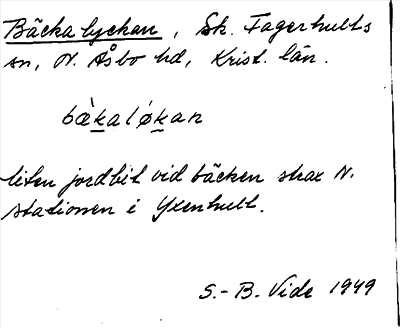 Bäckalyckan, Sk. Fagerhults
sn, N. Åsbo hd, Krist. län.
bæ̀kaløkan
liten jordbit vid bäcken strax N.
stationen i Yxenhult.
S.-B. Vide 1949